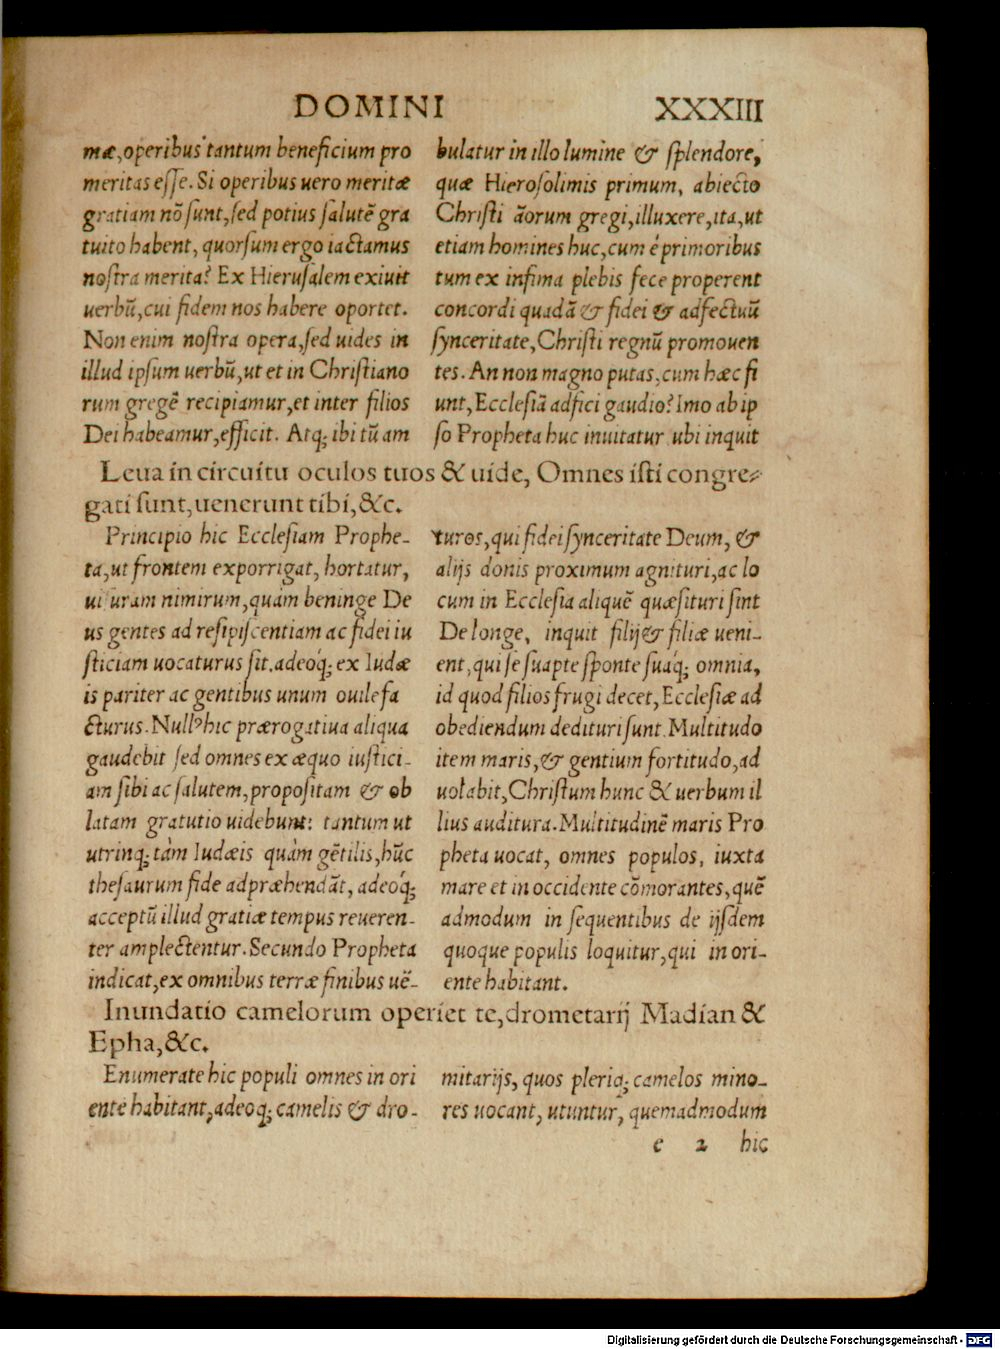 DOMINI XXXIII
mæ, operibus tantum beneficium pro
meritas esse. Si operibus uero meritæ
gratiam nõ sunt, sed potius salutẽ gra
tuito habent, quorsum ergo iactamus
nostra merita? Ex Hierusalem exiuit
uerbũ, cui fidem nos habere oportet.
Non enim nostra opera, sed uides in
illud ipsum uerbũ, ut et in Christiano
rum gregẽ recipiamur, et inter filios
Dei habeamur, efficit. Atq; ibi tũ am
bulatur in illo lumine & splendore,
quæ Hierosolimis primum, abiecto
Christi ãorum gregi, illuxere, ita, ut
etiam homines huc, cum è primoribus
tum ex infima plebis fece properent
concordi quadã & fidei & adfectuũ
synceritate, Christi regnũ promouen
tes. An non magno putas, cum hæc fi
unt, Ecclesiã adfici gaudio? Imo ab ip
so Propheta huc inuitatur ubi inquit
Leua in circuitu oculos tuos & uide, Omnes isti congre⸗
gati sunt, uenerunt tibi, &c.
Principio hic Ecclesiam Prophe-
ta, ut frontem exporrigat, hortatur,
uisuram nimirum, quàm beninge De
us gentes ad resipiscentiam ac fidei iu
sticiam uocaturus sit, adeoq́; ex Iudæ
is pariter ac gentibus unum ouile fa
cturus. Nullꝰ hic prærogatiua aliqua
gaudebit sed omnes ex æquo iustici-
am sibi ac salutem, propositam & ob
latam gratutio uidebunt: tantum ut
utrinq; tàm Iudæis quàm gẽtilis, hũc
thesaurum fide adpræhendãt, adeoq́;
acceptũ illud gratiæ tempus reueren-
ter amplectentur. Secundo Propheta
indicat, ex omnibus terræ finibus uẽ-
turos, qui fidei synceritate Deum, &
alijs donis proximum agnituri, ac lo
cum in Ecclesia aliquẽ quæsituri sint
De longe, inquit filij & filiæ ueni-
ent, qui se suapte sponte suaq́; omnia,
id quod filios frugi decet, Ecclesiæ ad
obediendum dedituri sunt. Multitudo
item maris, & gentium fortitudo, ad
uolabit, Christum hunc & uerbum il
lius auditura. Multitudinẽ maris Pro
pheta uocat, omnes populos, iuxta
mare et in occidente cõmorantes, quẽ
admodum in sequentibus de ijsdem
quoque populis loquitur, qui in ori-
ente habitant.
Inundatio camelorum operiet te, drometarij Madian &
Epha, &c.
Enumerate hic populi omnes in ori
ente habitant, adeoq; camelis & dro-
mitarijs, quos pleriq; camelos mino-
res uocant, utuntur, quemadmodum
e 2 hic
Digitalisierung gefördert durch die Deutsche Forschungsgemeinschaft - DFG